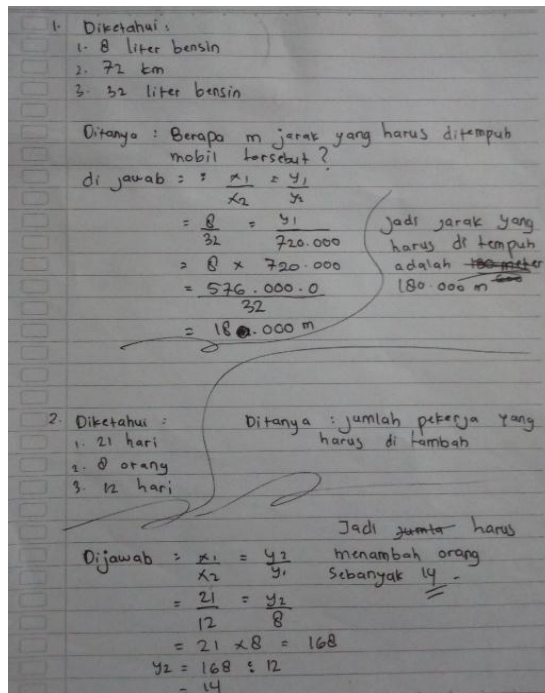 1. Diketahui :
1. 8 liter bensin
2. 72 km
3. 32 liter bensin
Ditanya : Berapa m jarak yang harus ditempuh
mobil tersebut ?
di jawab = : x1/x2 = y1/y2
= 8/32 = y1/720.000
= 8 x 720.000
= 576.000.0/32
= 180.000 m
Jadi jarak yang
harus di tempuh
adalah 180 meter
180.000 m
2. Diketahui :
1. 21 hari
2. 8 orang
3. 12 hari
Ditanya : jumlah pekerja yang
harus di tambah
Dijawab : x1/x2 = y2/y1
= 21/12 = y2/8
= 21 x 8 = 168
y2 = 168 : 12
= 14
Jadi jumla harus
menambah orang
sebanyak 14 .